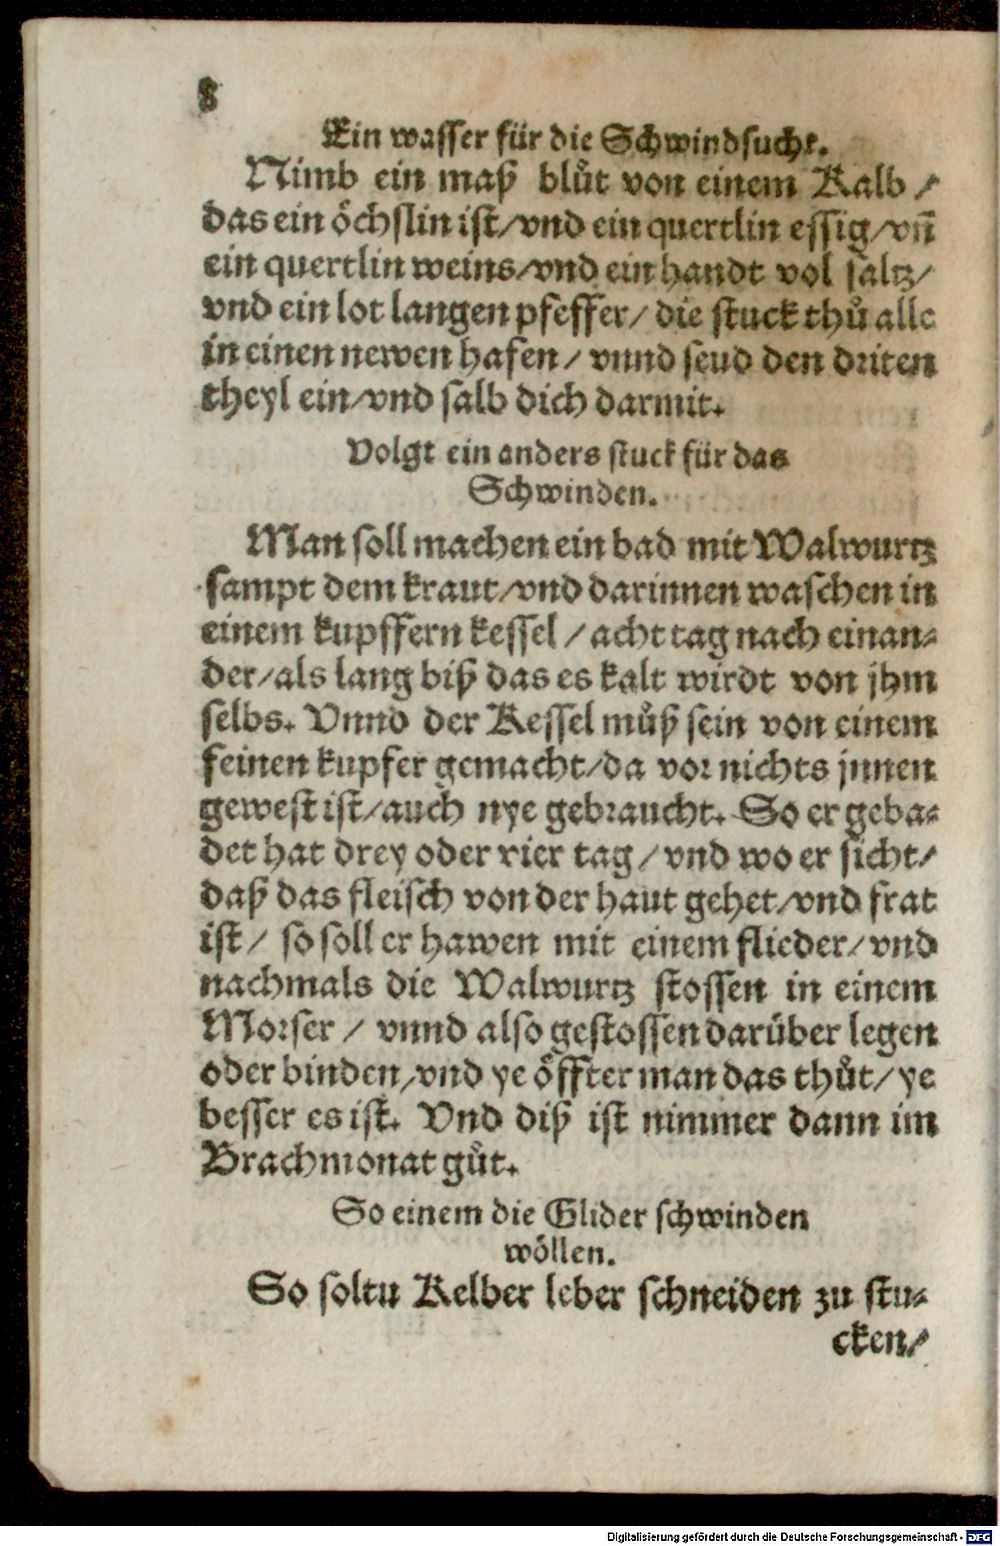 8
Ein wasser für die Schwindsucht.
Nimb ein maß blůt von einem Kalb /
das ein öchslin ist/vnd ein quertlin essig/vñ
ein quertlin weins/vnd ein handt vol saltz/
vnd ein lot langen pfeffer/ die stuck thů alle
in einen newen hafen / vnnd seud den driten
theyl ein/vnd salb dich darmit.
Volgt ein anders stuck für das
Schwinden.
Man soll machen ein bad mit Walwurtz
sampt dem kraut/vnd darinnen waschen in
einem kupffern kessel / acht tag nach einan-
der/als lang biß das es kalt wirdt von jhm
selbs. Vnnd der Kessel můß sein von einem
feinen kupfer gemacht/da vor nichts jnnen
gewest ist/auch nye gebraucht. So er geba-
det hat drey oder vier tag / vnd wo er sicht/
daß das fleisch von der haut gehet/vnd frat
ist/ so soll er hawen mit einem flieder/vnd
nachmals die Walwurtz stossen in einem
Morser / vnnd also gestossen darüber legen
oder binden/vnd ye öffter man das thůt/ye
besser es ist. Vnd diß ist nimmer dann im
Brachmonat gůt.
So einem die Glider schwinden
wöllen.
So soltu Kelber leber schneiden zu stu-
cken/
Digitalisierung gefördert durch die Deutsche Forschungsgemeinschaft - DFG